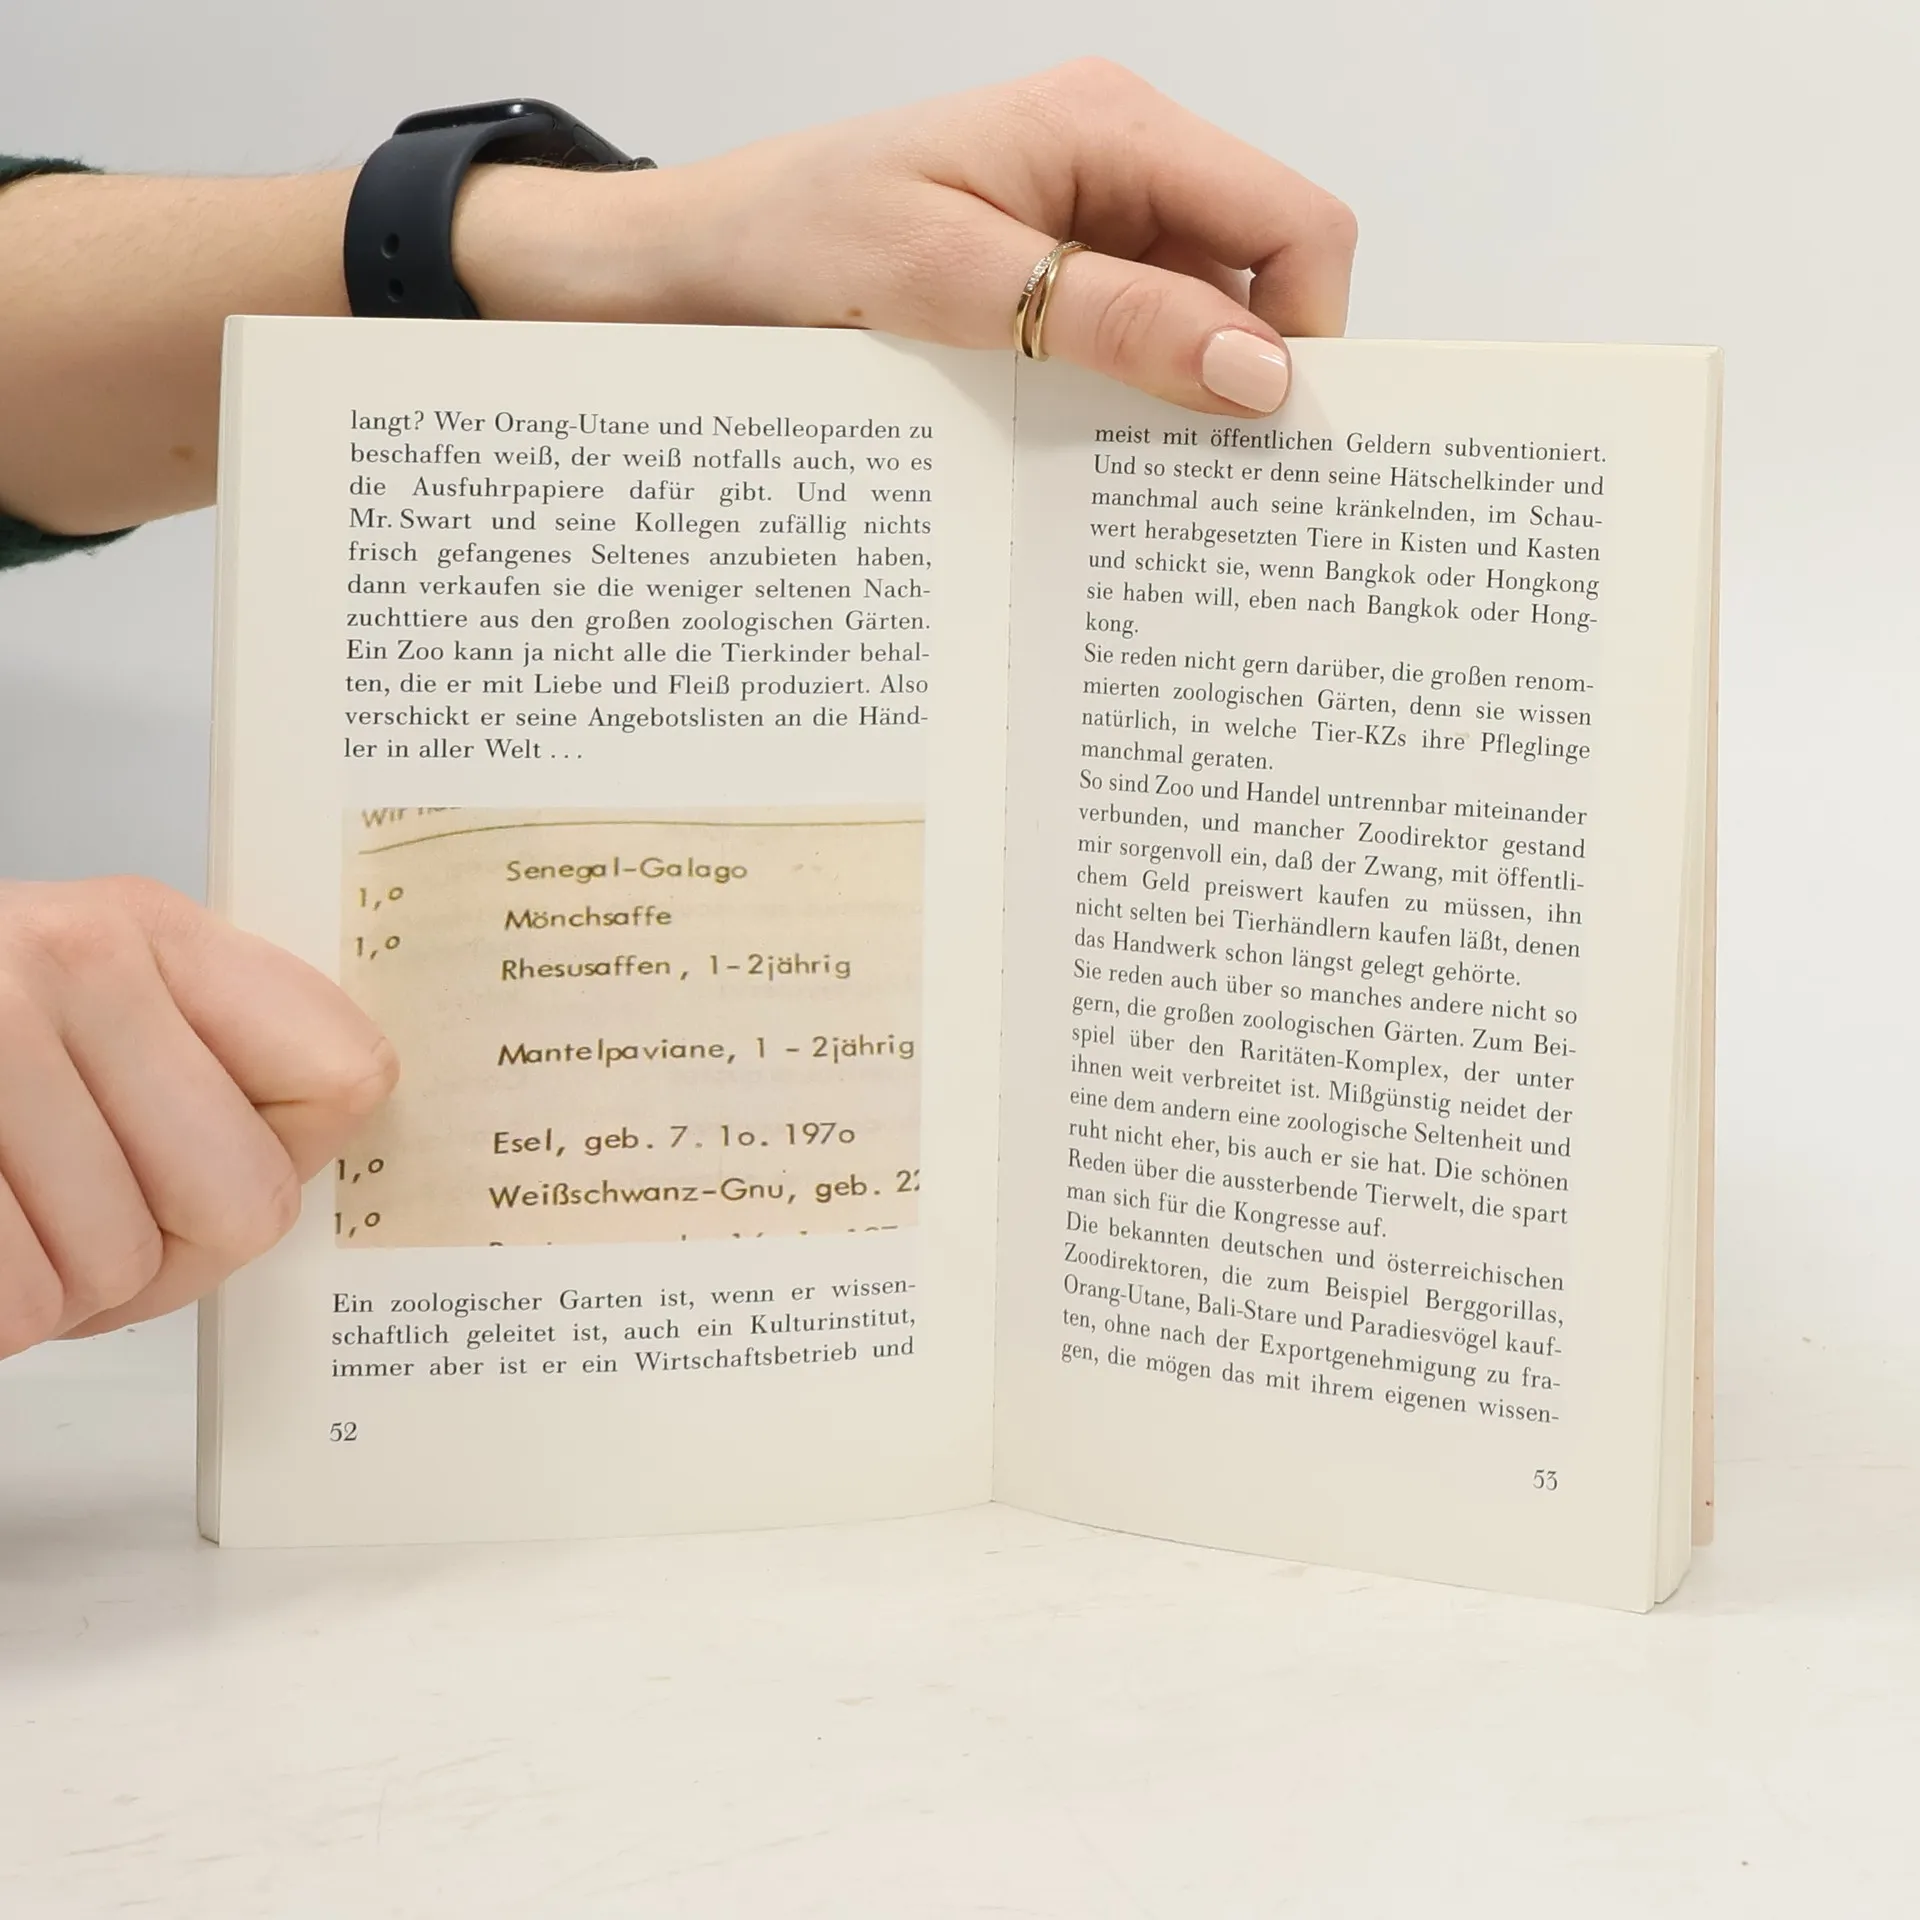 langt? Wer Orang-Utane und Nebelleoparden zu
beschaffen weiß, der weiß notfalls auch, wo es
die Ausfuhrpapiere dafür gibt. Und wenn
Mr. Swart und seine Kollegen zufällig nichts
frisch gefangenes Seltenes anzubieten haben,
dann verkaufen sie die weniger seltenen Nach-
zuchttiere aus den großen zoologischen Gärten.
Ein Zoo kann ja nicht alle die Tierkinder behal-
ten, die er mit Liebe und Fleiß produziert. Also
verschickt er seine Angebotslisten an die Händ-
ler in aller Welt ...
Wir
Senegal-Galago
1,o
Mönchsaffe
1,o
Rhesusaffen, 1-2jährig
Mantelpaviane, 1 - 2jährig
Esel, geb. 7. 1o. 197o
1,o
Weißschwanz-Gnu, geb. 22
1,o
Ein zoologischer Garten ist, wenn er wissen-
schaftlich geleitet ist, auch ein Kulturinstitut,
immer aber ist er ein Wirtschaftsbetrieb und
52
meist mit öffentlichen Geldern subventioniert.
Und so steckt er denn seine Hätschelkinder und
manchmal auch seine kränkelnden, im Schau-
wert herabgesetzten Tiere in Kisten und Kasten
und schickt sie, wenn Bangkok oder Hongkong
sie haben will, eben nach Bangkok oder Hong-
kong.
Sie reden nicht gern darüber, die großen renom-
mierten zoologischen Gärten, denn sie wissen
natürlich, in welche Tier-KZs ihre Pfleglinge
manchmal geraten.
So sind Zoo und Handel untrennbar miteinander
verbunden, und mancher Zoodirektor gestand
mir sorgenvoll ein, daß der Zwang, mit öffentli-
chem Geld preiswert kaufen zu müssen, ihn
nicht selten bei Tierhändlern kaufen läßt, denen
das Handwerk schon längst gelegt gehörte.
Sie reden auch über so manches andere nicht so
gern, die großen zoologischen Gärten. Zum Bei-
spiel über den Raritäten-Komplex, der unter
ihnen weit verbreitet ist. Mißgünstig neidet der
eine dem andern eine zoologische Seltenheit und
ruht nicht eher, bis auch er sie hat. Die schönen
Reden über die aussterbende Tierwelt, die spart
man sich für die Kongresse auf.
Die bekannten deutschen und österreichischen
Zoodirektoren, die zum Beispiel Berggorillas,
Orang-Utane, Bali-Stare und Paradiesvögel kauf-
ten, ohne nach der Exportgenehmigung zu fra-
gen, die mögen das mit ihrem eigenen wissen-
53